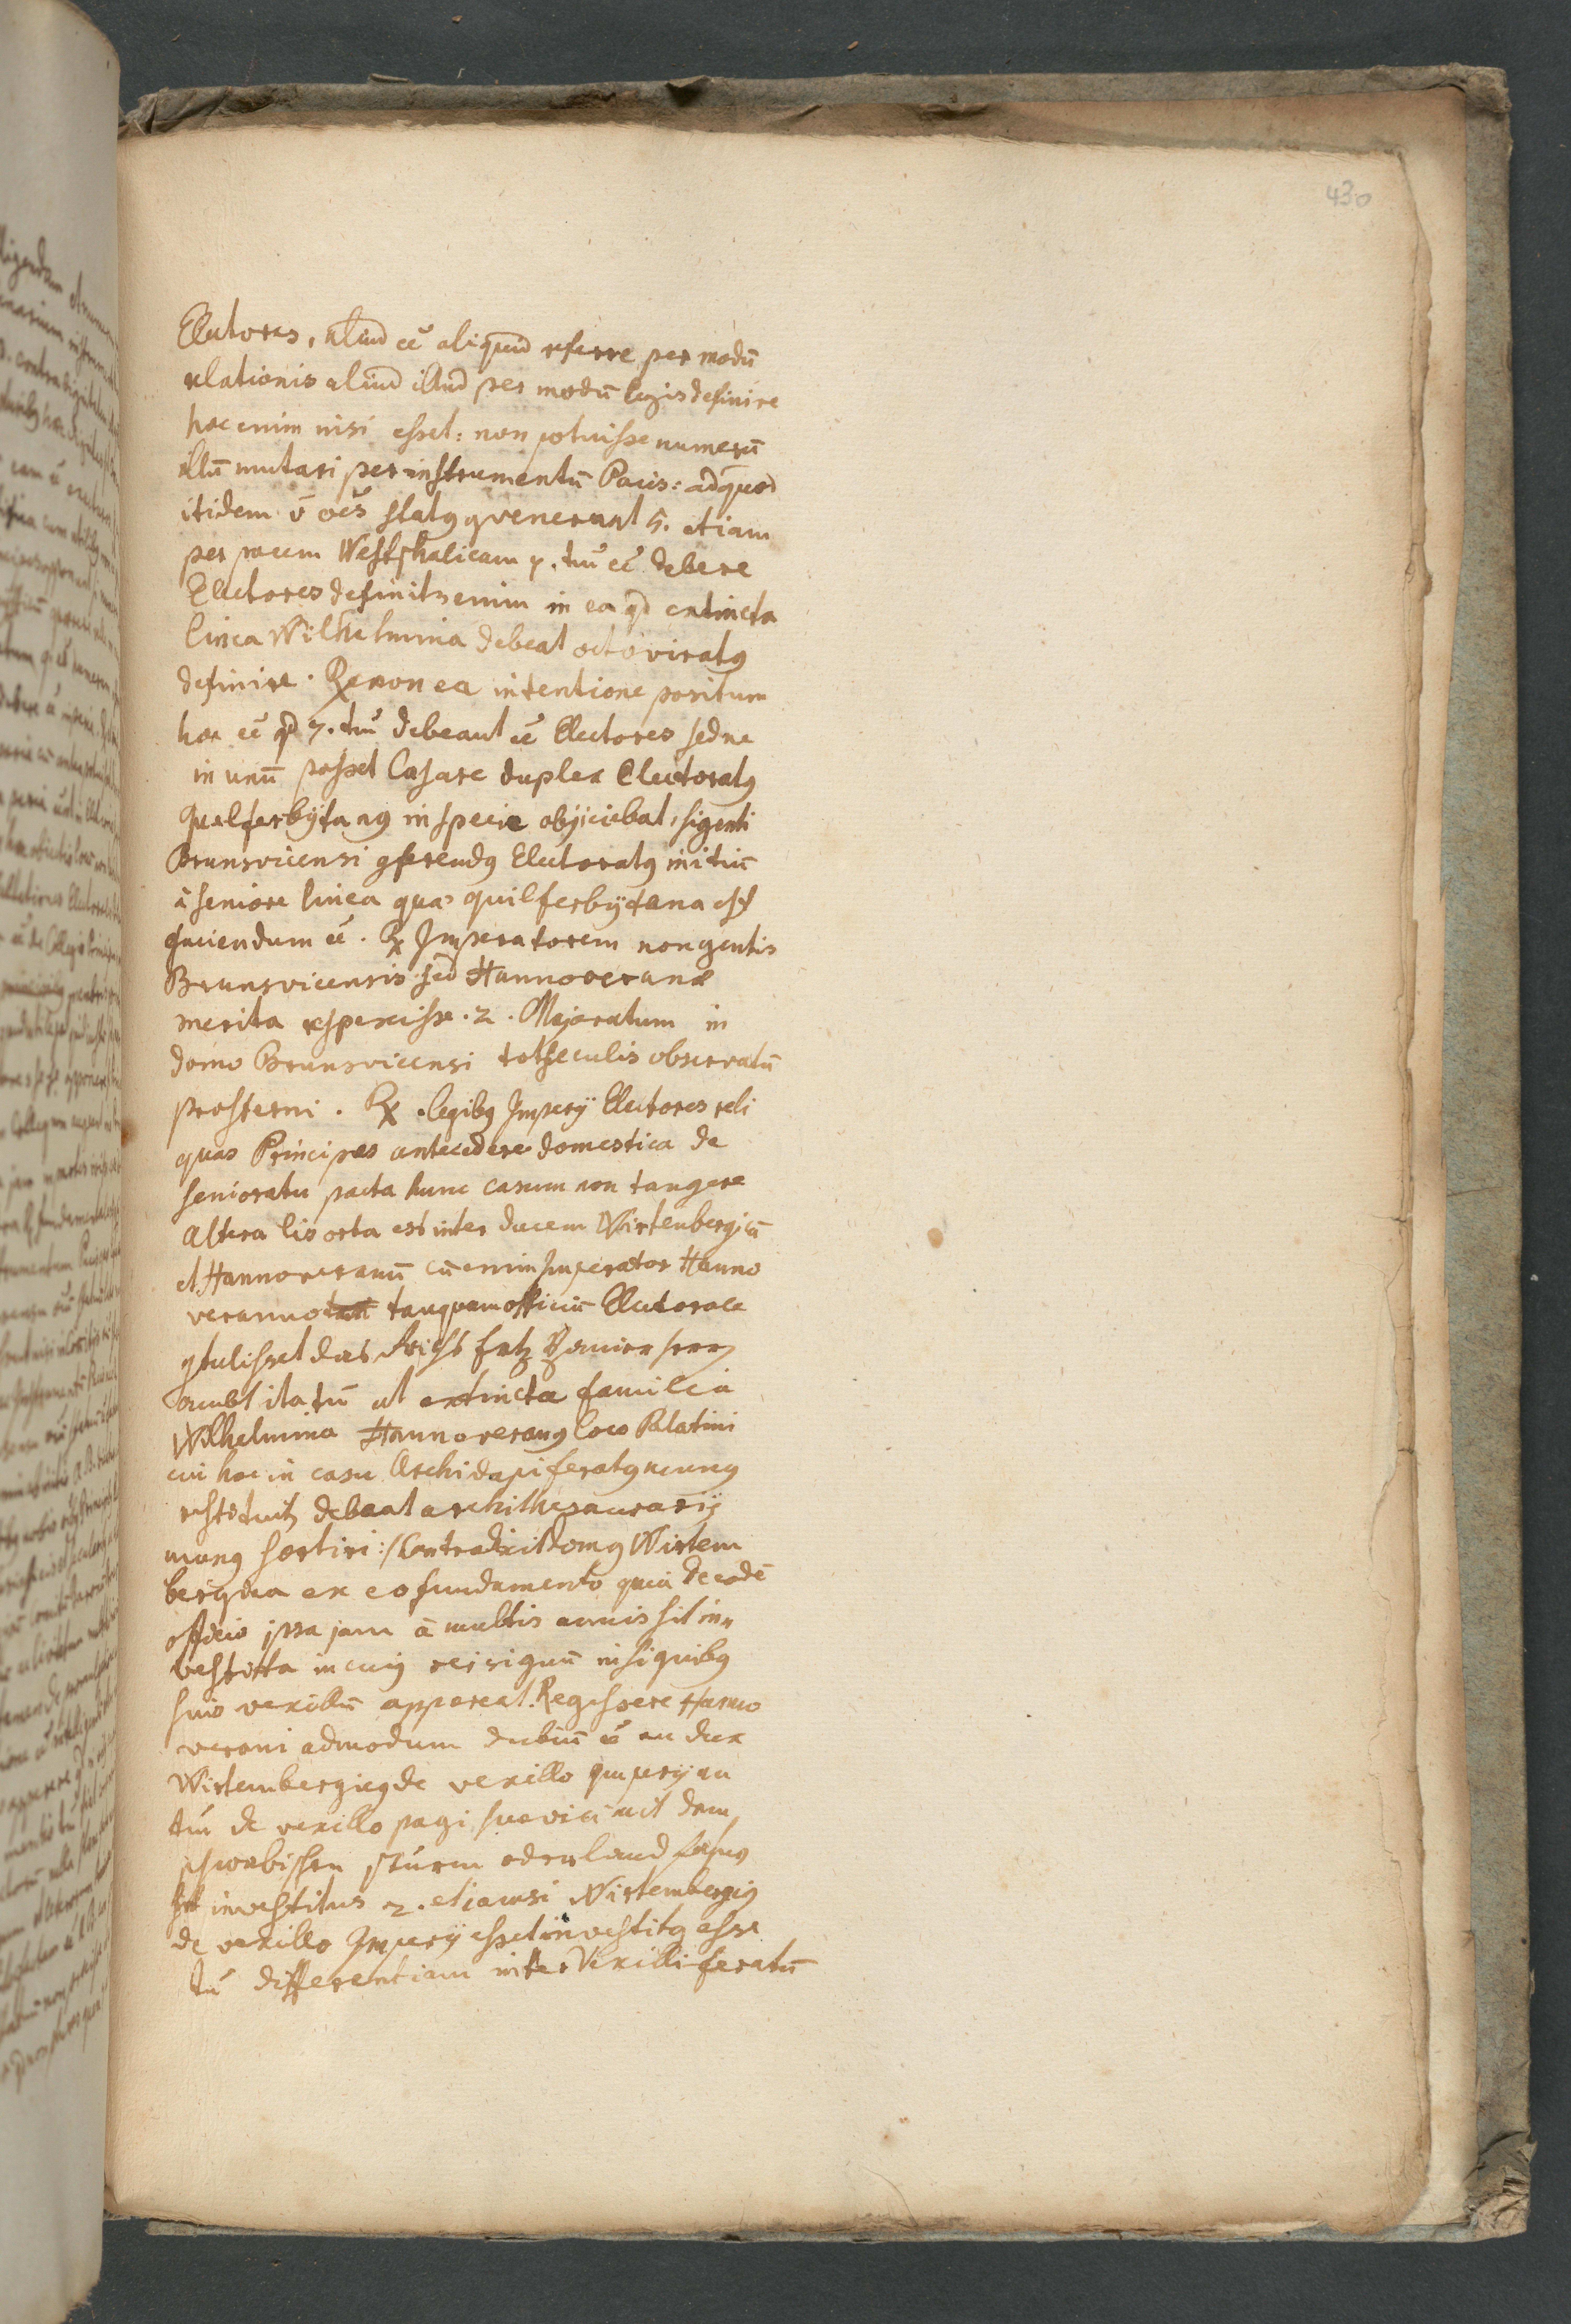 430
Electores, aliud eē aliquid referre per modū
relationis aliud illud per modū legis definire
hoc enim nisi esset: non potuisse numerū
illū mutari per instrumentū Pacis: ad quod
itidem ō oēs statꝯ ꝯvenerunt 5. etiam
per pacem Westphalicam 7. tm̄ eē debere
Electores definitꝫ enim in ea qd extincta
linea Wilhelmina debeat octoviratꝯ
definire. ℞ non ea intentione positum
hoc eē qd 7. tm̄ debeant eē Electores sed ne
in unū posset Casare duplex Electoratꝯ
Guelferbÿtanꝯ in specie objiciebat, si genti
Brunsvicensi ꝯferendꝯ Electoratꝯ initiū
à seniore linea quæ quilferbÿtana est
faciendum eē. ℞ Imperatorem non gentis
Brunsvicensis sed Hannoveranæ
merita respexisse. 2. Majoratum in
domo Brunsvicensi tot seculis observatū
prosterni. ℞. legibꝯ Imperÿ Electores reli
quos Principes antecedere domestica de
senioratu pacta hunc casum non tangere
Altera lis orta est inter ducem Wirtenbergicū
et Hannoveranū cū enim Imperator Hanno
verano tanquam officiū Electorale
ꝯtulisset das Reichs Ertz Banier herrn
ambt ita tn̄ ut extincta familia
Wilhelmina Hannoveranꝯ loco Palatini
cui hoc in casu Archidapiferatꝯ munꝯ
restituitꝫ debeat archithesaurarÿ
munꝯ sortiri :/ Contradixit domꝯ Wirtem
bergica ex eo fundamento quia de eodē
officio ipsa jam à multis annis sit in„
vestita in cujꝯ rei signū insignibꝯ
suis vexillū appareat. Regessere Hanno
verani admodum dubiū eē an dux
Wirtembergicꝯ de vexillo Imperÿ an
tm̄ de vexillo pagi suevici mit dem
schwäbischen Sturm oder land fahnꝯ
sit investitus 2. etiamsi Wirtembergicꝯ
de vexillo Imperÿ esset investitꝯ esse
tn̄ differentiam inter Vexilliferatū